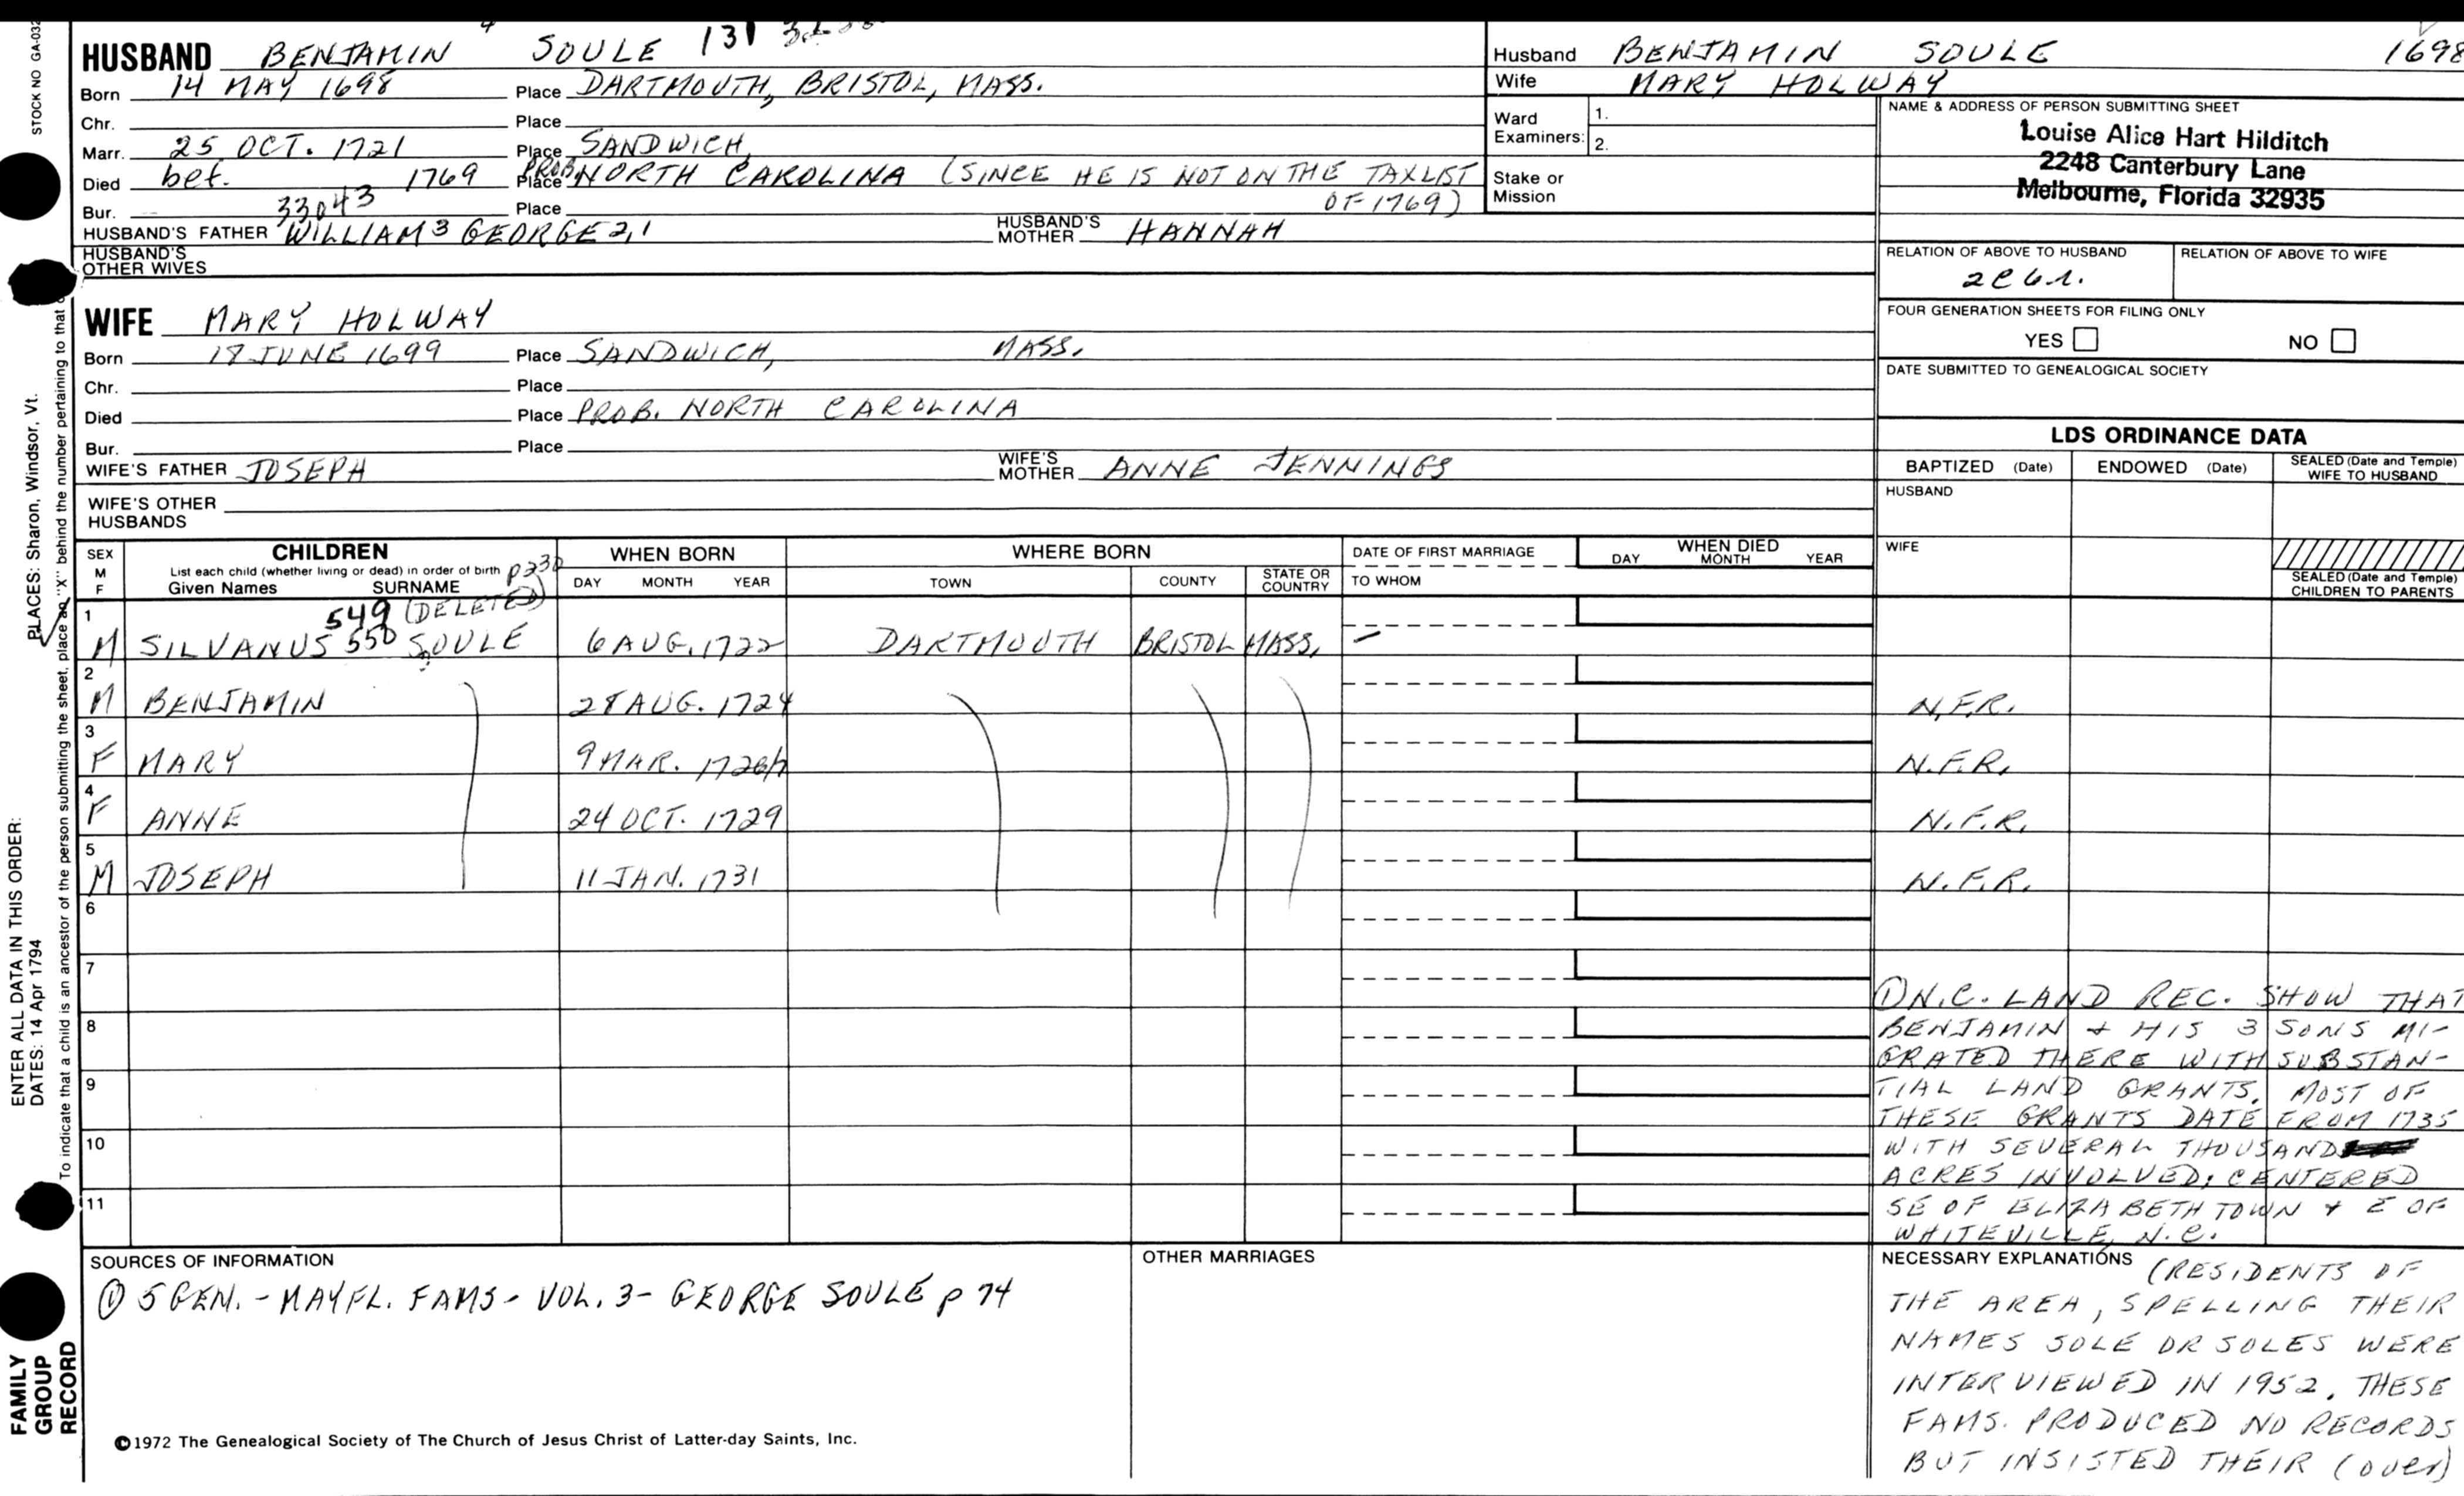 HUSBAND BENJAMIN 4 SOULE 131
Born 14 MAY 1698 Place DARTMOUTH, BRISTOL, MASS.
Chr. Place
Marr. 25 OCT. 1721 Place SANDWICH,
Died bef. 1769 Place PROB. NORTH CAROLINA (SINCE HE IS NOT ON THE TAXLIST
OF 1769)
Bur. 33043 Place
HUSBAND'S FATHER WILLIAM 3 GEORGE 2,1 HUSBAND'S MOTHER HANNAH
HUSBAND'S OTHER WIVES
WIFE MARY HOLWAY
Born 18 JUNE 1699 Place SANDWICH, MASS.
Chr. Place
Died Place PROB. NORTH CAROLINA
Bur. Place
WIFE'S FATHER JOSEPH WIFE'S MOTHER ANNE JENNINGS
WIFE'S OTHER HUSBANDS
Husband BENJAMIN SOULE 1698
Wife MARY HOLWAY
Ward Examiners: 1.
2.
Stake or Mission
NAME & ADDRESS OF PERSON SUBMITTING SHEET
Louise Alice Hart Hilditch
2248 Canterbury Lane
Melbourne, Florida 32935
RELATION OF ABOVE TO HUSBAND RELATION OF ABOVE TO WIFE
2C6r.
FOUR GENERATION SHEETS FOR FILING ONLY
YES NO
DATE SUBMITTED TO GENEALOGICAL SOCIETY
LDS ORDINANCE DATA
BAPTIZED (Date) ENDOWED (Date) SEALED (Date and Temple) WIFE TO HUSBAND
HUSBAND
WIFE
SEALED (Date and Temple) CHILDREN TO PARENTS
SEX M F
CHILDREN
List each child (whether living or dead) in order of birth
Given Names SURNAME
WHEN BORN
DAY MONTH YEAR
WHERE BORN
TOWN COUNTY STATE OR COUNTRY
DATE OF FIRST MARRIAGE
TO WHOM
WHEN DIED
DAY MONTH YEAR
549 (DELETED) p 230
1 M SILVANUS 550 SOULE 6 AUG. 1722 DARTMOUTH BRISTOL MASS. –
2 M BENJAMIN 28 AUG. 1724 N.F.R.
3 F MARY 9 MAR. 1726/7 N.F.R.
4 F ANNE 24 OCT. 1729 N.F.R.
5 M JOSEPH 11 JAN. 1731 N.F.R.
6
7
8
9
10
11
① N.C. LAND REC. SHOW THAT
BENJAMIN + HIS 3 SONS MI-
GRATED THERE WITH SUBSTAN-
TIAL LAND GRANTS. MOST OF
THESE GRANTS DATE FROM 1735
WITH SEVERAL THOUSAND
ACRES INVOLVED; CENTERED
SE OF ELIZABETH TOWN + E OF
WHITEVILLE, N.C.
SOURCES OF INFORMATION
① 5 GEN. - MAYFL. FAMS - VOL. 3 - GEORGE SOULE p 74
OTHER MARRIAGES
NECESSARY EXPLANATIONS (RESIDENTS OF
THE AREA, SPELLING THEIR
NAMES SOLE OR SOLES WERE
INTERVIEWED IN 1952. THESE
FAMS. PRODUCED NO RECORDS
BUT INSISTED THEIR (over)
©1972 The Genealogical Society of The Church of Jesus Christ of Latter-day Saints, Inc.
STOCK NO GA-032
PLACES: Sharon, Windsor, Vt.
To indicate that a child is an ancestor of the person submitting the sheet, place an "X" behind the number pertaining to that
ENTER ALL DATA IN THIS ORDER:
DATES: 14 Apr 1794
FAMILY
GROUP
RECORD